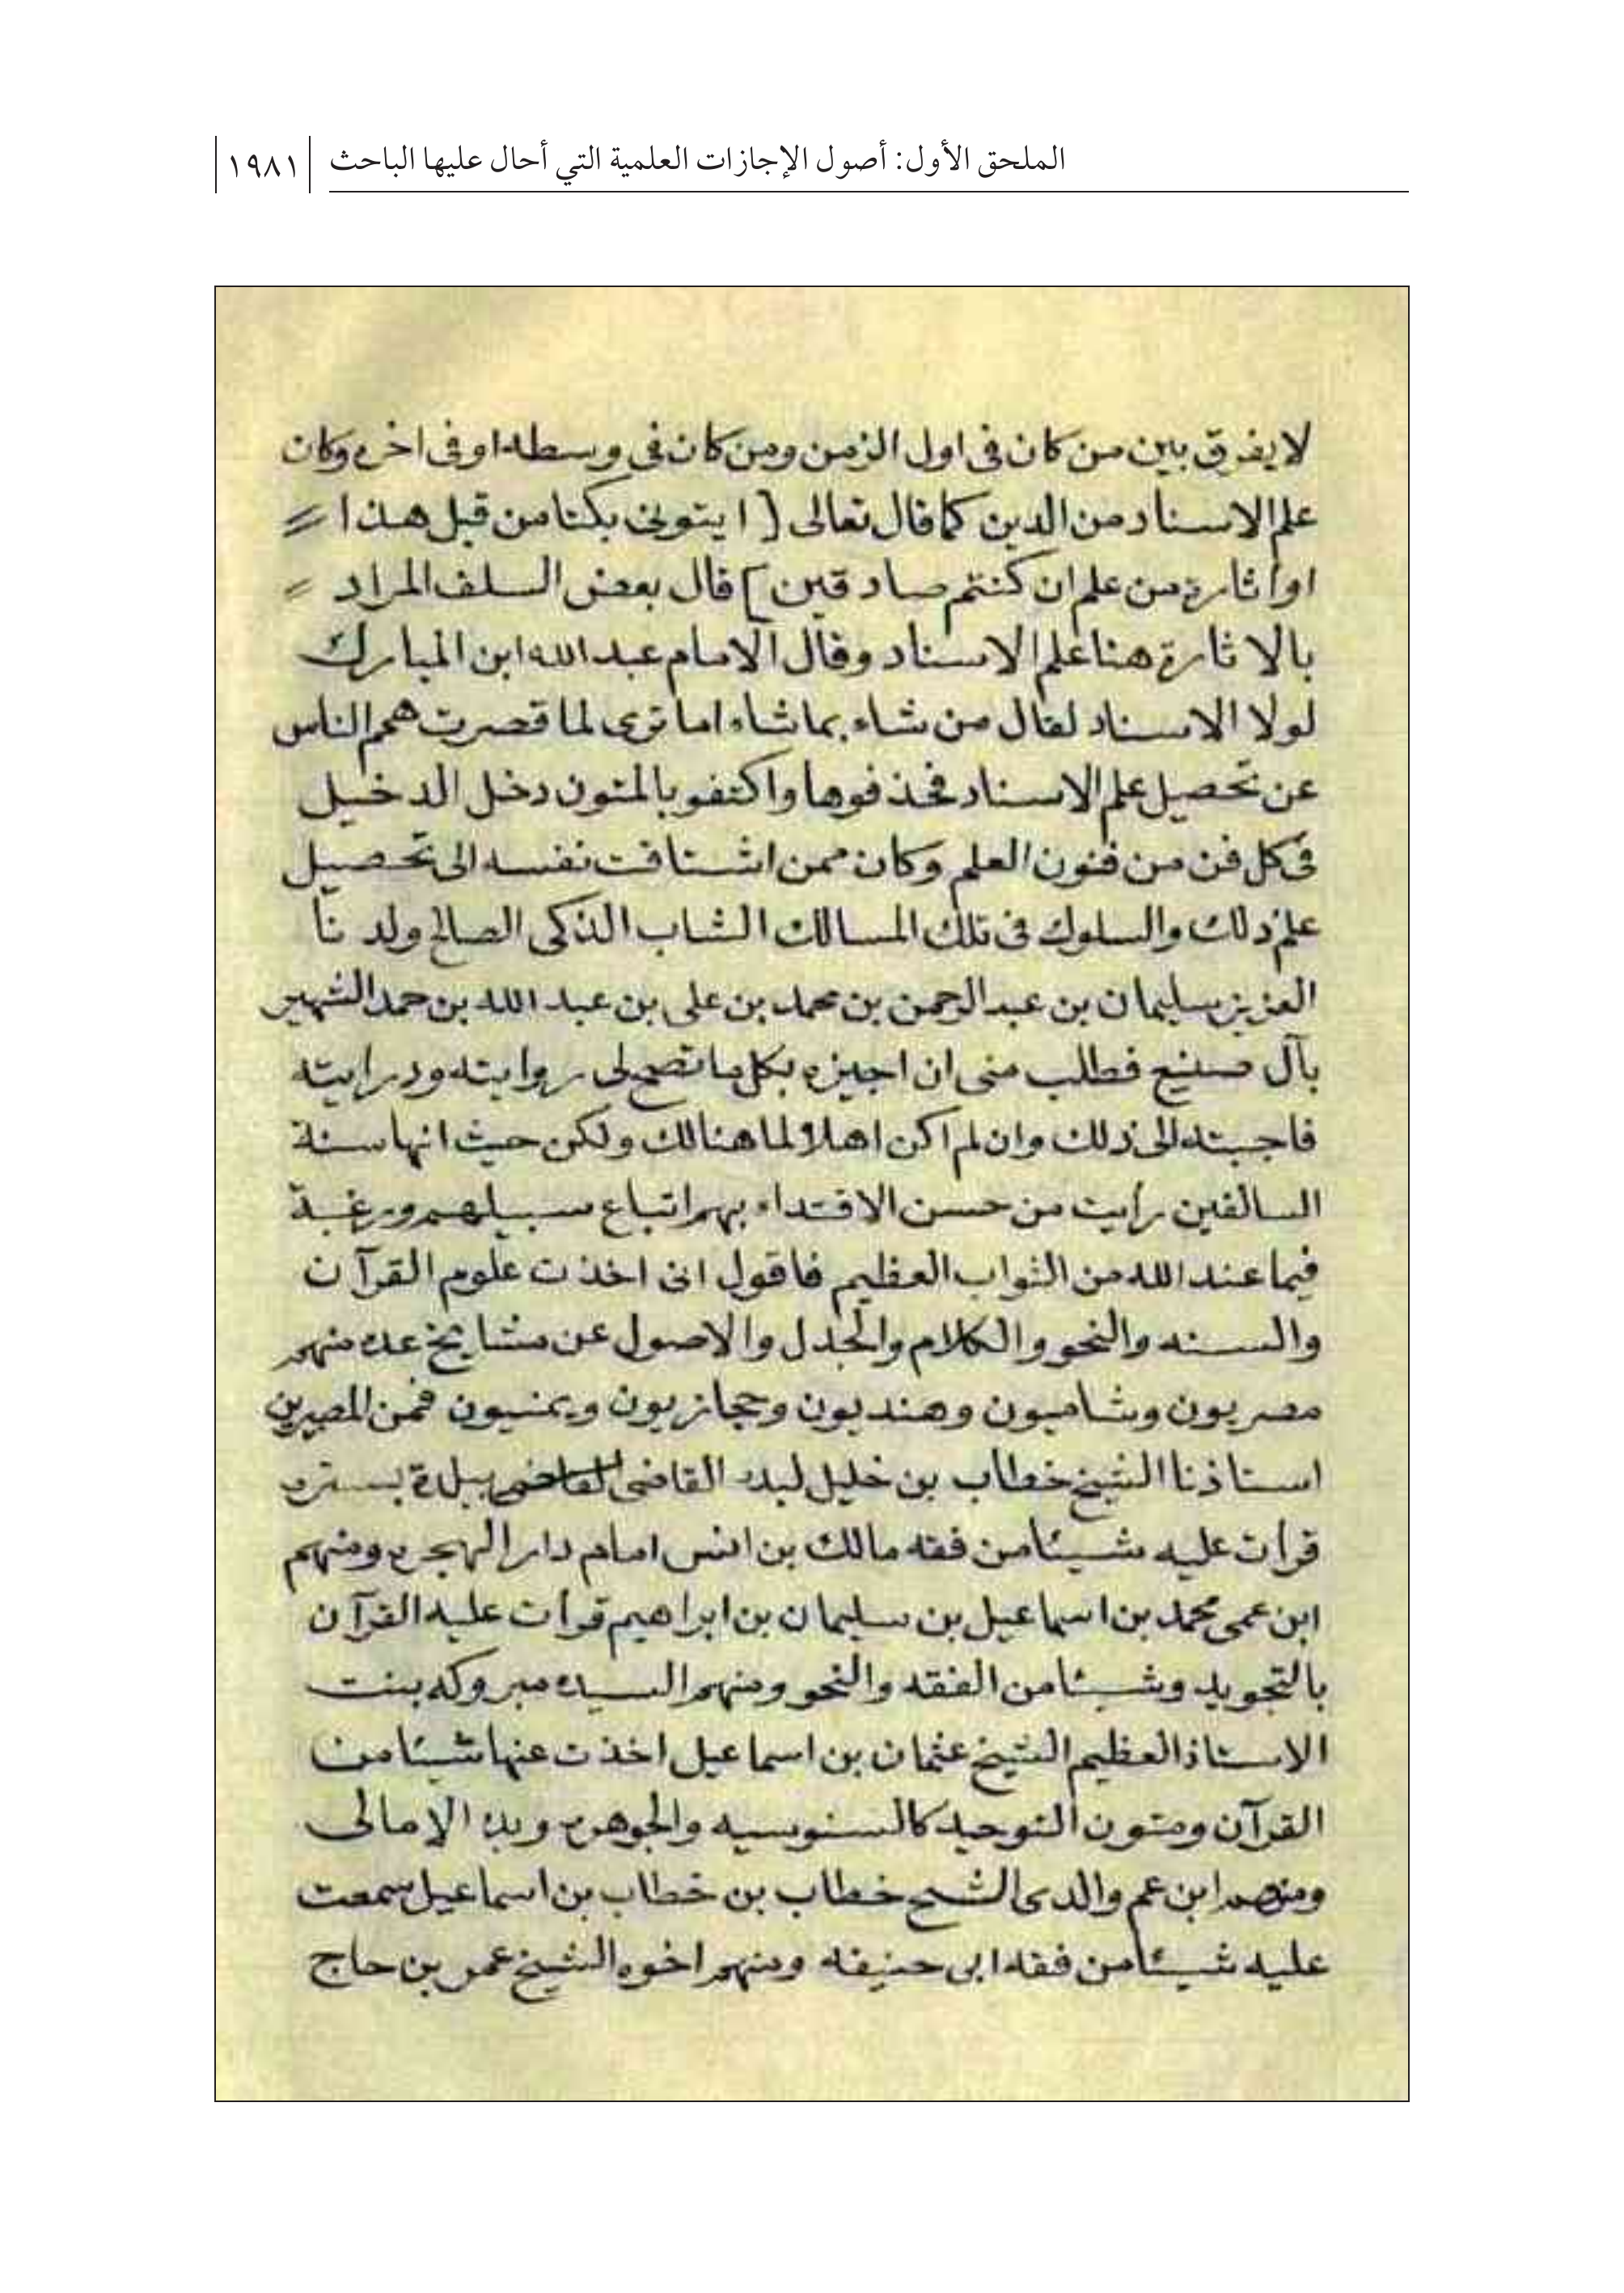 الملحق الأول: أصول الإجازات العلمية التي أحال عليها الباحث ١٩٨١
لا يفرق بين من كان فى اول الزمن ومن كان فى وسطه او فى اخره وكان
علم الاسناد من الدين كما قال تعالى [ ا يتونى بكتا من قبل هذا
او اثارة من علم ان كنتم صادقين ] قال بعض السلف المراد
بالاثارة هنا علم الاسناد وقال الامام عبد الله ابن المبارك
لولا الاسناد لقال من شاء بما شاء اما ترى لما قصرت همم الناس
عن تحصيل علم الاسناد فحذفوها واكتفو بالمتون دخل الدخيل
فى كل فن من فنون العلم وكان ممن اشتاقت نفسه الى تحصيل
علم ذلك والسلوك فى تلك المسالك الشاب الذكى الصالح ولدنا
العزيز سليمان بن عبد الرحمن بن محمد بن على بن عبد الله بن حمد الشهير
بآل صنيع فطلب منى ان اجيزه بكل ما تصح لى روايته ودرايته
فاجبته الى ذلك وان لم اكن اهلا لما هنالك ولكن حيث انها سنة
السالفين رأيت من حسن الاقتداء بهم اتباع سبيلهم ورغبة
فيما عند الله من الثواب العظيم فاقول انى اخذت علوم القرآن
والسنه والنحو والكلام والجدل والاصول عن مشايخ عده منهم
مصريون وشاميون وهنديون وحجازيون ويمنيون فمن المصرين
استاذنا الشيخ خطاب بن خليل لبده القاضى ببلدة بستره
قرأت عليه شيئا من فقه مالك بن انس امام دار الهجره ومنهم
ابن عمى محمد بن اسماعيل بن سليمان بن ابراهيم قرأت عليه القرآن
بالتجويد وشيئا من الفقه والنحو ومنهم السيده مبروكه بنت
الاستاذ العظيم الشيخ عثمان بن اسماعيل اخذت عنها شيئا من
القرآن ومتون التوحيد كالسنوسيه والجوهره وبدء الامالى
ومنهم ابن عم والدى الشيخ خطاب بن خطاب بن اسماعيل سمعت
عليه شيئا من فقه ابى حنيفه ومنهم اخوه الشيخ عمر بن حاج